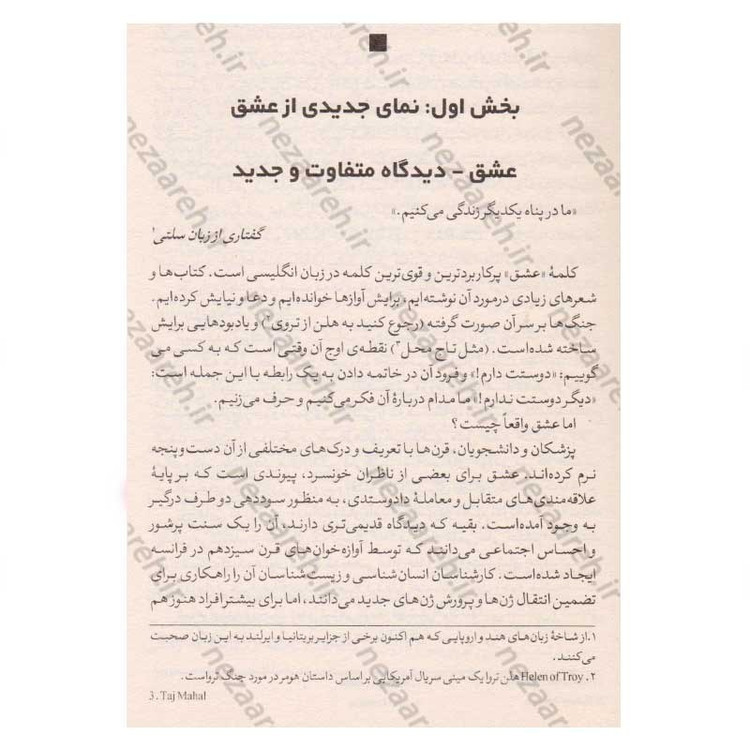 بخش اول: نمای جدیدی از عشق
عشق – دیدگاه متفاوت و جدید
«ما در پناه یکدیگر زندگی می‌کنیم.»
گفتاری از زبان سلتی۱
کلمهٔ «عشق» پرکاربردترین و قوی‌ترین کلمه در زبان انگلیسی است. کتاب‌ها و
شعرهای زیادی درمورد آن نوشته‌ایم، برایش آوازها خوانده‌ایم و دعا و نیایش کرده‌ایم.
جنگ‌ها بر سر آن صورت گرفته (رجوع کنید به هلن از تروی۲) و یادبودهایی برایش
ساخته شده‌است. (مثل تاج محل۳) نقطه‌ی اوج آن وقتی است که به کسی می
گوییم: «دوستت دارم!» و فرود آن در خاتمه دادن به یک رابطه با این جمله است:
«دیگر دوستت ندارم!» ما مدام دربارهٔ آن فکر می‌کنیم و حرف می‌زنیم.
اما عشق واقعاً چیست؟
پزشکان و دانشجویان، قرن‌ها با تعریف و درک‌های مختلفی از آن دست و پنجه
نرم کرده‌اند. عشق برای بعضی از ناظران خونسرد، پیوندی است که بر پایهٔ
علاقه‌مندی‌های متقابل و معاملهٔ دادوستدی، به منظور سوددهی دو طرف درگیر
به وجود آمده‌است. بقیه که دیدگاه قدیمی‌تری دارند، آن را یک سنت پرشور
و احساس اجتماعی می‌دانند که توسط آوازه‌خوان‌های قرن سیزدهم در فرانسه
ایجاد شده‌است. کارشناسان انسان‌شناسی و زیست‌شناسان آن را راهکاری برای
تضمین انتقال ژن‌ها و پرورش ژن‌های جدید می‌دانند، اما برای بیشتر افراد هنوز هم
۱. از شاخهٔ زبان‌های هند و اروپایی که هم اکنون برخی از جزایر بریتانیا و ایرلند به این زبان صحبت
می‌کنند.
۲. Helen of Troy هلن تروا یک مینی سریال آمریکایی بر اساس داستان هومر در مورد جنگ تروا‌ست.
3. Taj Mahal
nezaareh.ir